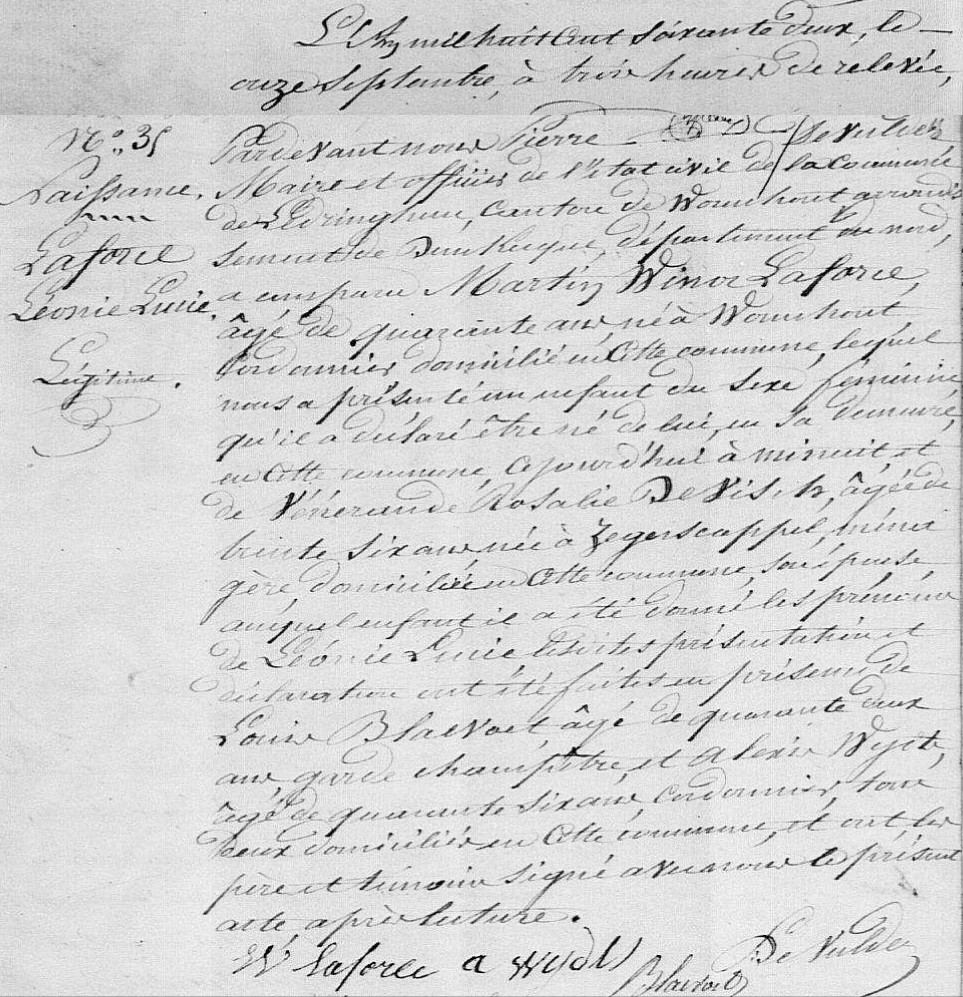 L'An mil huit cent soixante deux, le
onze Septembre, à trois heures de relevée,
Pardevant nous Pierre De Vulder
Maire et officier de l'état civil de la Commune
de Ledringhem, Canton de Wormhout arrondis
sement de Dunkerque, département du nord,
a comparu Martin Winoc Laforce,
âgé de quarante ans né à Wormhout
Cordonnier domicilié en Cette commune, lequel
nous a présenté un enfant du Sexe féminin
qu'il a déclaré être né de lui, en sa demeure,
en Cette commune, Cejourd'hui à minuit et
de Vénérande Rosalie De Visch, âgée de
trente six ans née à Zegerscappel, ména
gère, domiciliée en Cette commune, son épouse,
auquel enfant il a été donné les prénoms
de Léonie Lucie lesdites présentation et
déclaration ont été faites en présence de
Louis Blaevoet âgé de quarante deux
ans, garde champêtre, et Alexis Wyts,
âgé de quarante six ans, cordonnier tous
deux domiciliés en Cette commune, et ont les
père et témoins signé avec nous le présent
acte, après lecture.
W Laforce a Blaevoet De Vulder
N° 35
Naissance.
Laforce
Léonie Lucie.
Légitime.